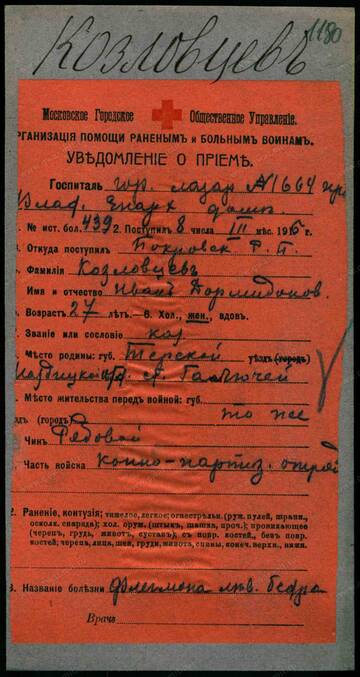 1180
Козловцевъ
Московское Городское Общественное Управленіе.
РГАНИЗАЦІЯ ПОМОЩИ РАНЕНЫМЪ и БОЛЬНЫМЪ ВОИНАМЪ.
УВѢДОМЛЕНІЕ О ПРІЕМѢ.
Госпиталь гор. лазар №1664 при
Влад. Епарх домѣ.
№ ист. бол. 4392. Поступилъ 8 числа III мѣс. 1916 г.
Откуда поступилъ Покровск Р. П.
Фамилія Козловцевъ
Имя и отчество Иванъ Дормидонов.
Возрастъ 27 лѣтъ.—6. Хол., жен., вдов.
Званіе или сословіе каз
Мѣсто родины: губ. Терской уѣздъ (городъ)
ст. Галюгаей
Мѣсто жительства передъ войной: губ.
здъ (городъ) то же
Чинъ Рядовой
Часть войска конно-партиз. отряд
2. Раненіе, контузія: тяжелое, легкое; огнестрѣльн. (руж. пулей, шрапн.,
осколк. снаряда); хол. оруж. (штыкъ, шашка, проч.); проникающее
(черепъ, грудь, животъ, суставъ); съ повр. костей, безъ повр.
костей; черепъ, лица, шеи, груди, живота, спины, конеч. верхн., нижн.
3. Названіе болѣзни флегмона лѣв. бедра
Врачъ